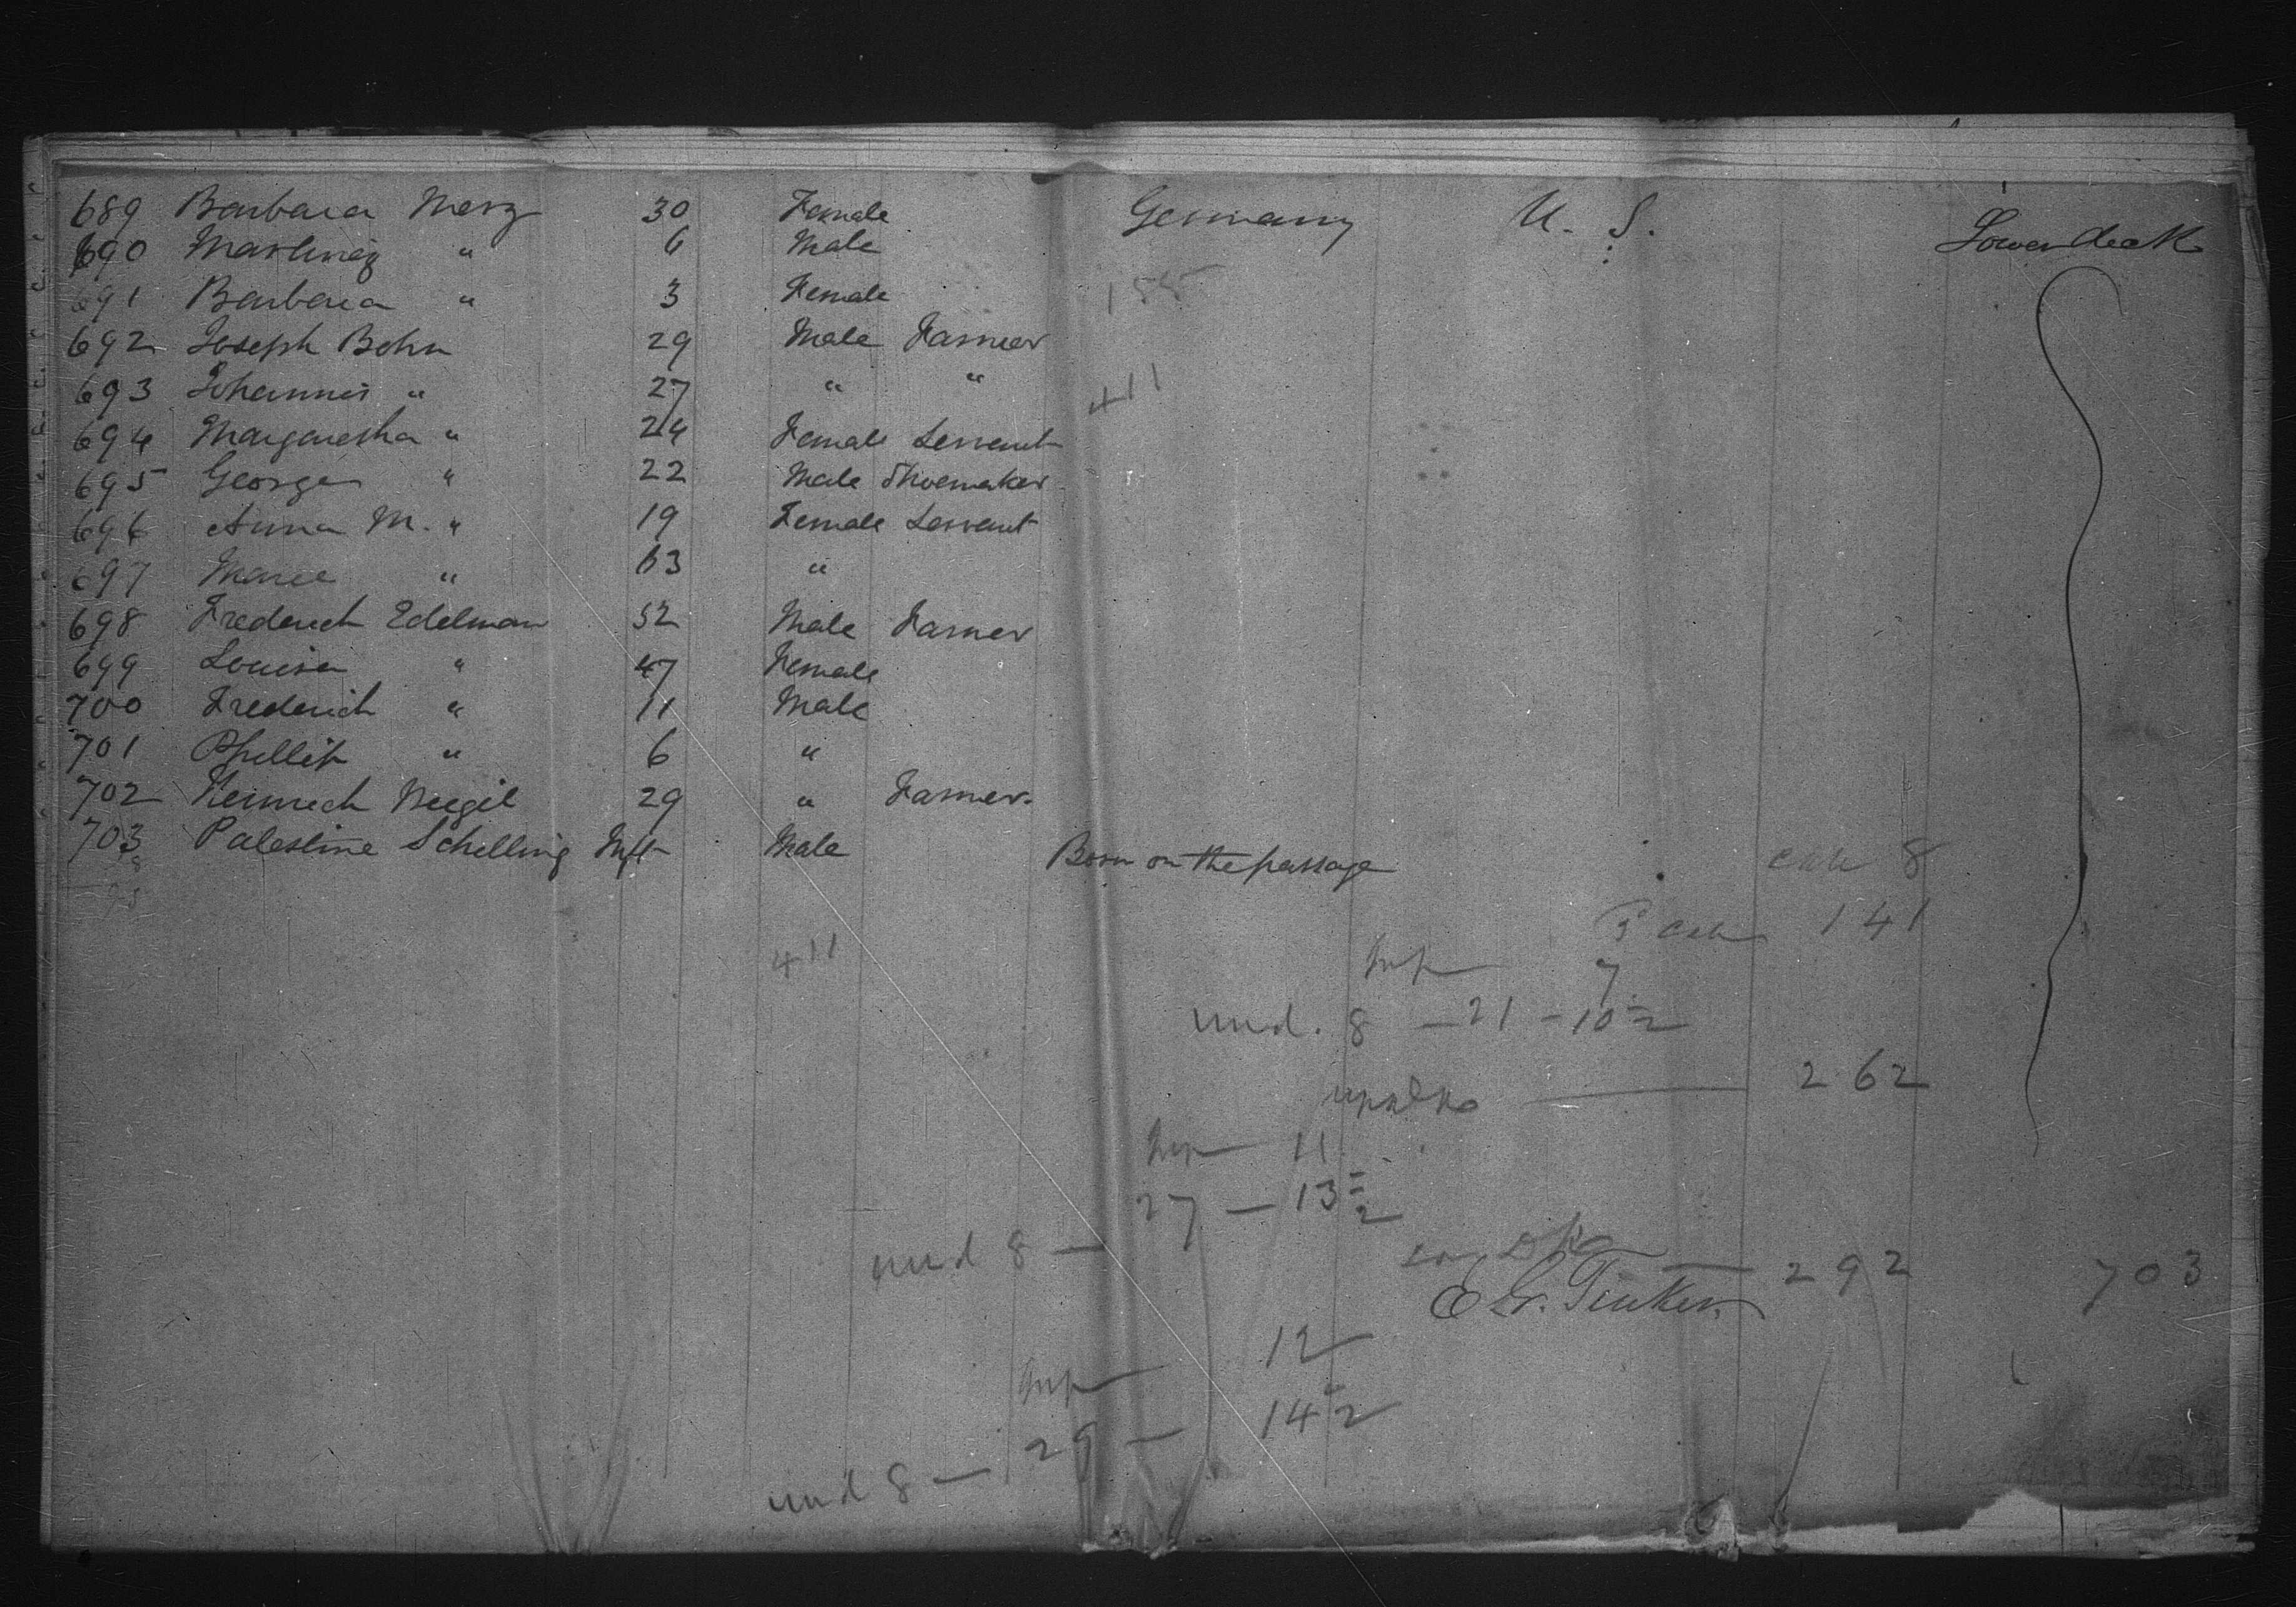 689 Barbara Merz 30 Female Germany U. S. Lower deck
690 " 6 Male
691 Barbara " 3 Female
692 Joseph Bohn 29 Male Farmer
693 Johannes " 27 " "
411
694 Margaretha " 24 Female Servant
695 George " 22 Male Shoemaker
696 Anna M. " 19 Female Servant
697 Marie " 63 "
698 Frederich Edelman 52 Male Farmer
699 Louisa " 47 Female
700 Frederich " 11 Male
701 Phillip " 6 "
702 Heinrich 29 " Farmer.
703 Palestine Schelling Inft Male Born on the passage
8
141
411
Inf 7
und. 8 — 21 – 10 1/2
262
Inf 11
und 8 — 27 — 13 1/2
292 703
Tinker
Inf 12
und 8 — 29 — 14 1/2